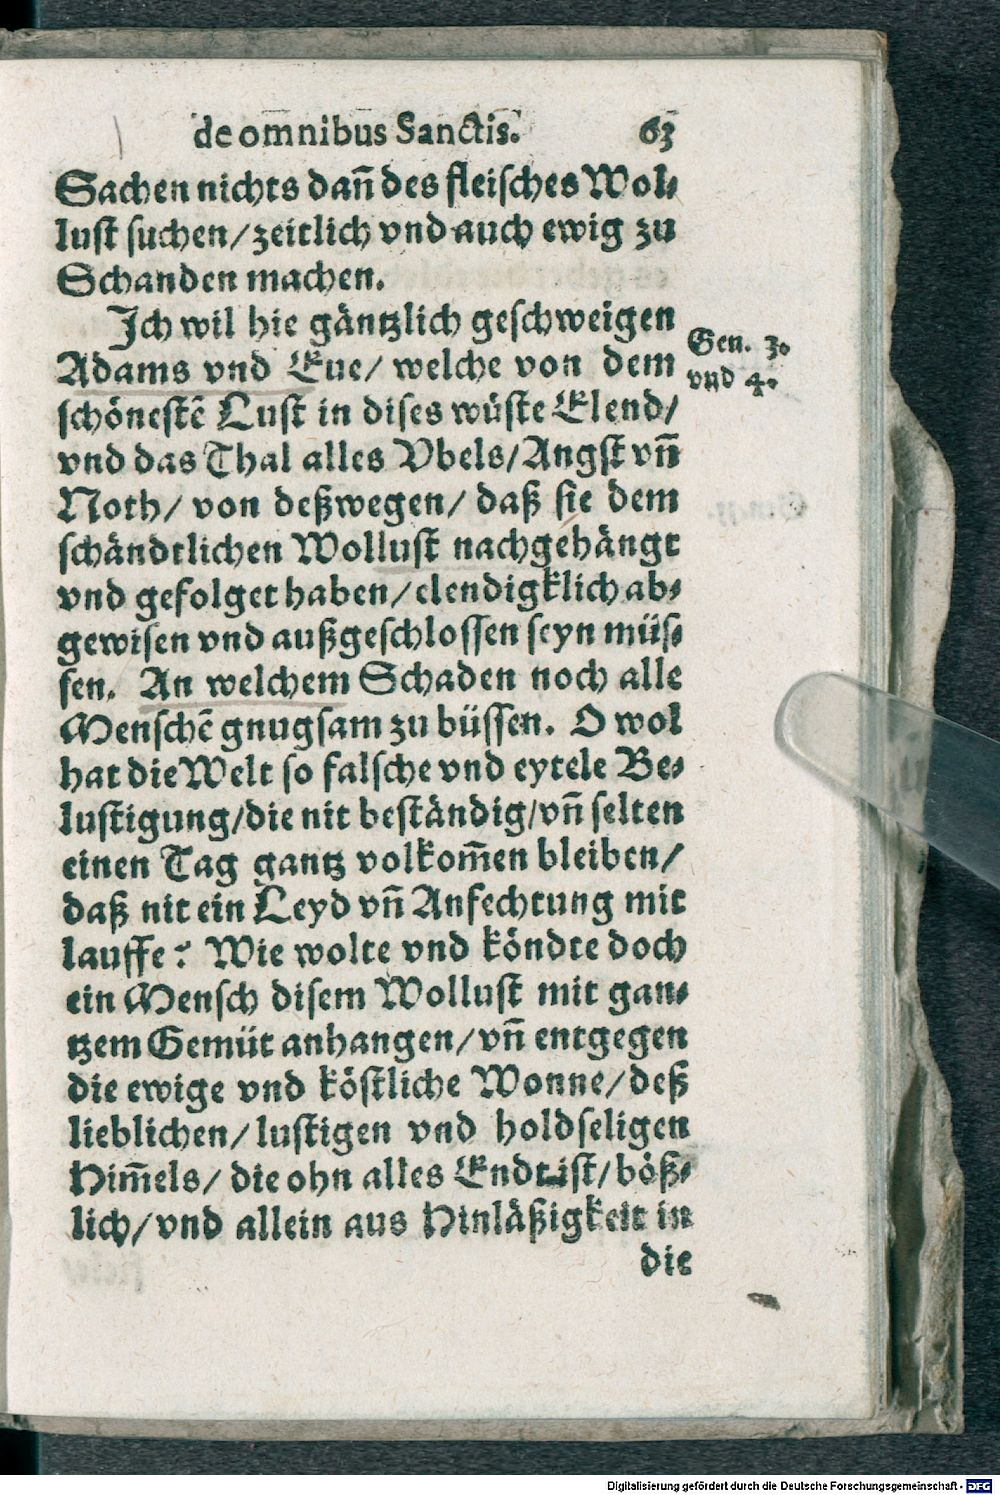 de om̄nibus Sanctis. 63
Sachen nichts dañ des fleisches Wol⸗
lust suchen/zeitlich vnd auch ewig zu
Schanden machen.
Ich wil hie gäntzlich geschweigen
Adams vnd Eue/ welche von dem
schönestē Lust in dises wüste Elend/
vnd das Thal alles Vbels/Angst vñ
Noth/ von deßwegen/ daß sie dem
schändtlichen Wollust nachgehängt
vnd gefolget haben/elendigklich ab⸗
gewisen vnd außgeschlossen seyn müs⸗
sen. An welchem Schaden noch alle
Menschē gnugsam zu büssen. O wol
hat die Welt so falsche vnd eytele Be⸗
lustigung/die nit beständig/vñ selten
einen Tag gantz volkom̃en bleiben/
daß nit ein Leyd vñ Anfechtung mit
lauffe? Wie wolte vnd köndte doch
ein Mensch disem Wollust mit gan⸗
tzem Gemüt anhangen/vñ entgegen
die ewige vnd köstliche Wonne/deß
lieblichen/lustigen vnd holdseligen
Him̃els/ die ohn alles Endt ist/böß⸗
lich/vnd allein aus Hinläßigkeit in
die
Gen. 3.
vnd 4.
Digitalisierung gefördert durch die Deutsche Forschungsgemeinschaft - DFG